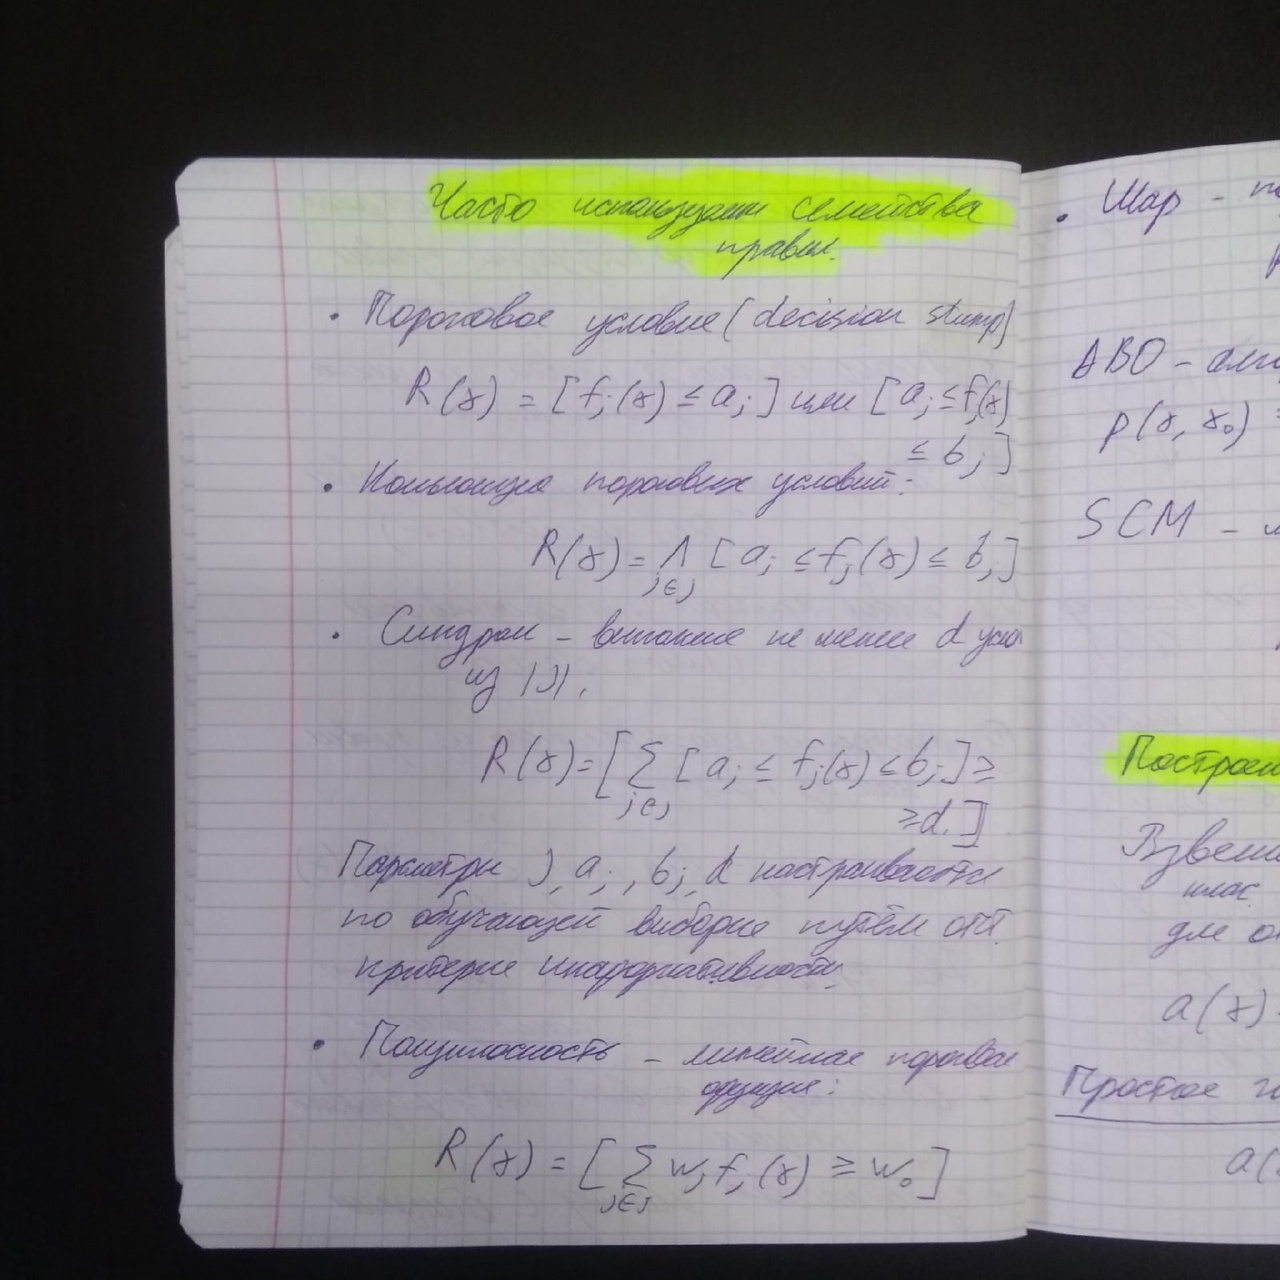 Часто используем семейства
правил.
• Пороговое условие (decision stump)
R(x) = [fⱼ(x) ≤ aⱼ] или [aⱼ ≤ fⱼ(x)
≤ bⱼ]
• Конъюнкция пороговых условий:
R(x) = ⋀ [aⱼ ≤ fⱼ(x) ≤ bⱼ]
j∈J
• Синдром – не менее d
из |J|.
R(x) = [∑ [aⱼ ≤ fⱼ(x) ≤ bⱼ] ≥
j∈J
≥ d.]
Параметры J, aⱼ, bⱼ, d настраиваются
по обучающей выборке путём опт.
критерия информативности.
• Полуплоскость – линейная пороговая
функция:
R(x) = [∑ wⱼfⱼ(x) ≥ w₀]
j∈J
• Шар –
ABO –
p(x, x₀)
SCM –
a(x)
Простое
a(